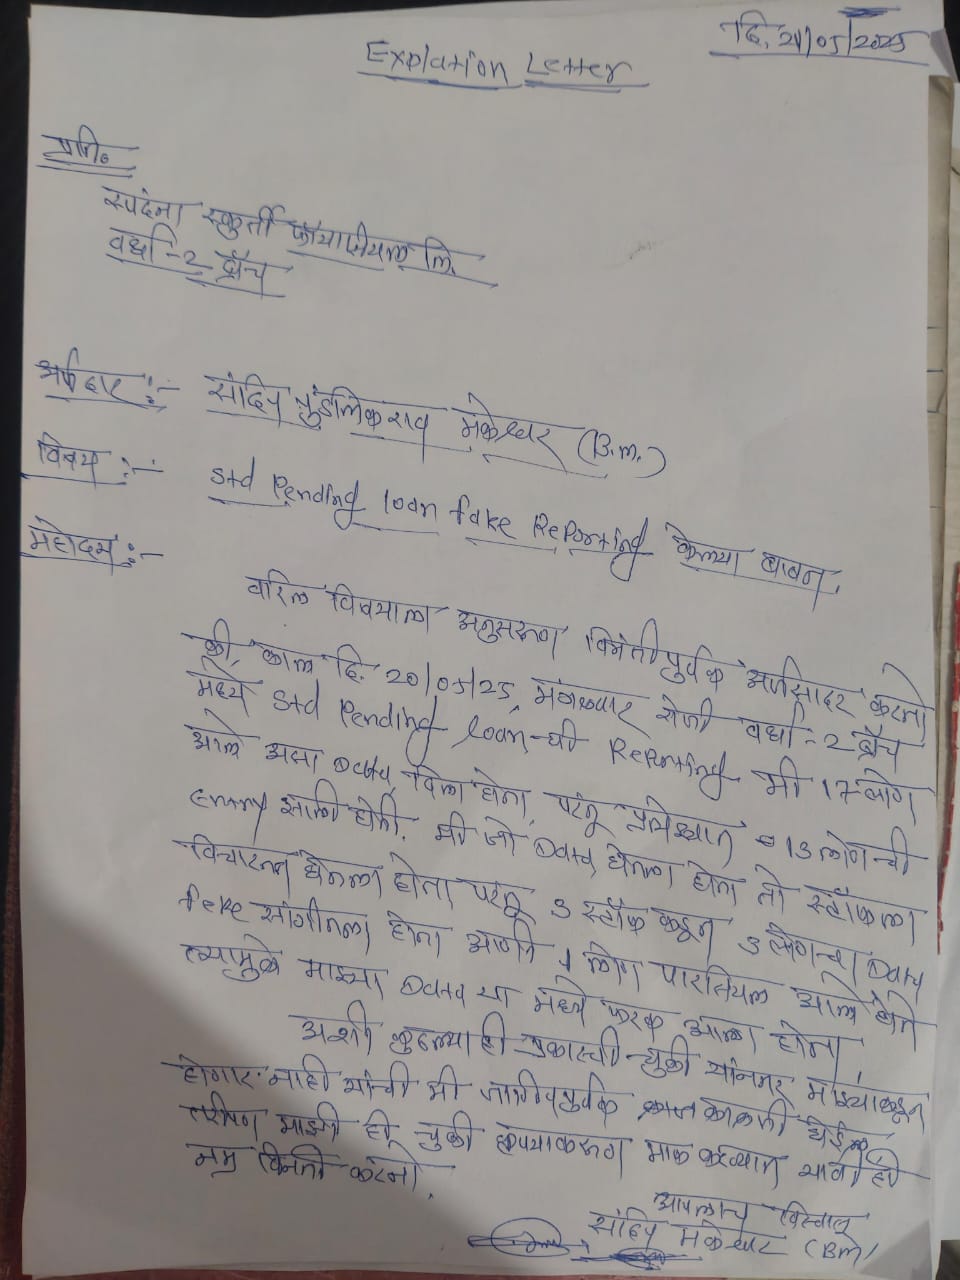 दि. 21/05/2025
Explation Letter
प्रति.
स्पदंना स्फुर्ती फायनांसीयल लि.
वर्धा-2 ब्रॅंच
अर्जदार :- संदिप पुंडलिकराव मकेश्वर (B.m.)
विषय :- Std Pending loan fake Reporting केल्या बाबत.
महोदय :-
वरिल विषयाला अनुसरूण विनंतीपुर्वक अर्जसादर करतो
की, काल दि. 20/05/25, मंगळवार रोजी वर्धा-2 ब्रॅंच
मध्ये Std Pending loan-ची Reporting मी 17 लोन
आले असा Data दिला होता, परंतू प्रत्येक्षात 13 लोन ची
Entry झाली होती. मी जो Data घेतला होता तो स्टॉफला
विचारून घेतला होता परंतू 3 स्टॉफ कडून 3 लोनचा Data
feke सांगीतला होता आणी 1 लोन पारसियल आले होते
त्यामुळे माझ्या Data या मध्ये फरक आला होता.
अशी कुठल्याही प्रकारची चुकी यांनतर माझ्याकडून
होणार नाही यांची मी जाणीवपुर्वक काळजी घेईल,
तरीपण माझी ही चुकी कृपयाकरूण माफ करण्यात यावी ही
नम्र विनंती करतो.
आपलाच विश्वासू
संदिप मकेश्वर (BM)